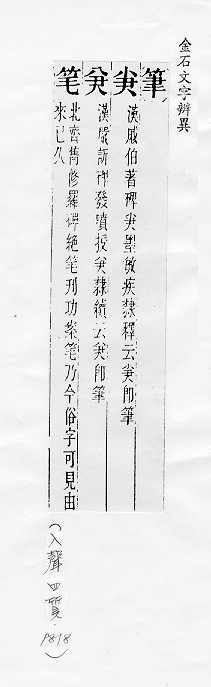 金石文字辨異
筆
漢戚伯著碑墨敏疾隸釋云即筆
漢嚴訢碑發憤授隸續云即筆
笔北齊雋修羅碑絕笔刊功案笔乃今俗字可見由
來已久
(入聲四質.P818)